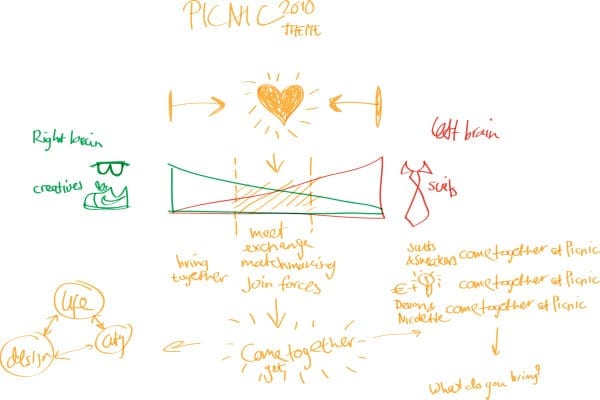 PICNIC 2010
THEME
Right brain
creatives
left brain
suits
bring
together
meet
exchange
matchmaking
join forces
suits
& sneakers come together at Picnic
€ + i come together at Picnic
Nicolette come together at Picnic
life
design
city
Come together
get
What do you bring?